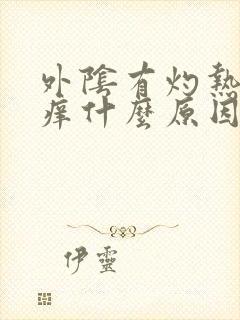 外陰有灼熱
痒什麼原因
伊靈